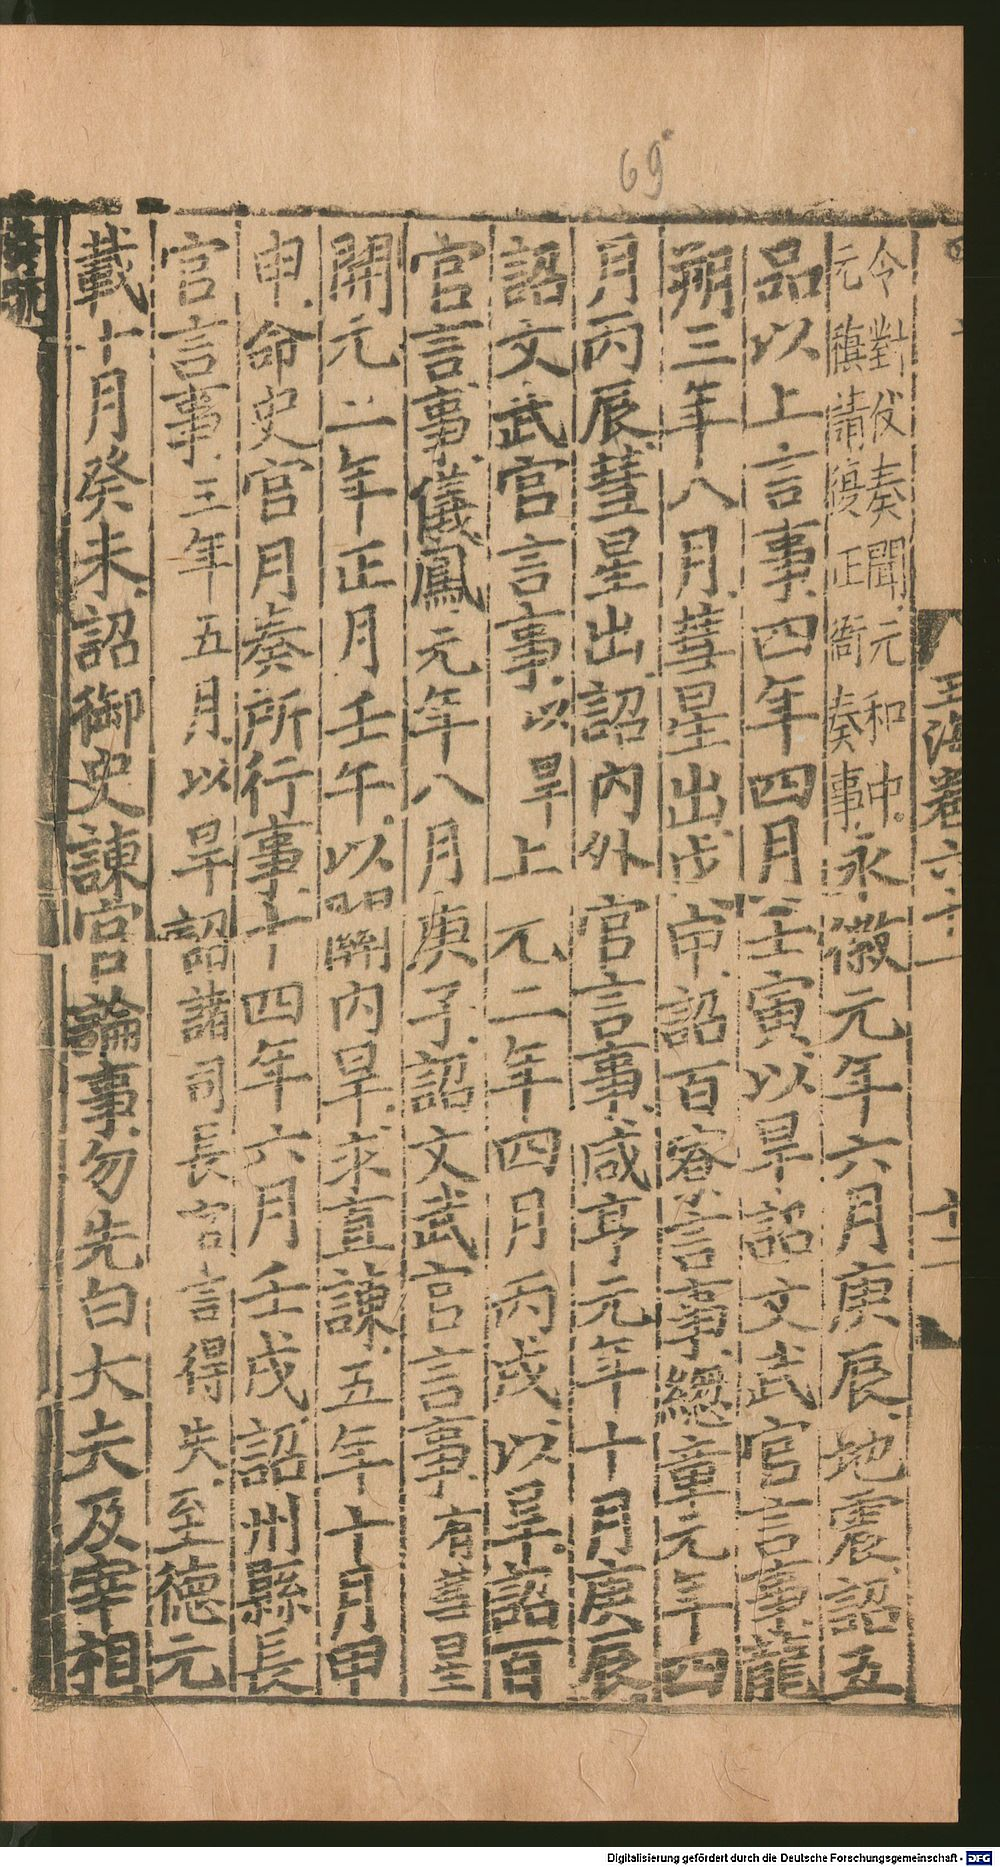 69
玉海卷六十一
十二
令對仗奏聞元和中
元稹請復正衙奏事永徽元年六月庚辰地震詔五
品以上言事四年四月壬寅以旱詔文武官言事龍
朔三年八月彗星出戊申詔百寮言事緫章元年四
月丙辰彗星出詔內外官言事咸亨元年十月庚辰
詔文武官言事以旱上元二年四月丙戌以旱詔百
官言事儀鳳元年八月庚子詔文武官言事有彗星
開元二年正月壬午以關內旱求直諫五年十月甲
申命史官月奏所行事十四年六月壬戌詔州縣長
官言事三年五月以旱詔諸司長官言得失至德元
載十月癸未詔御史諫官論事勿先白大夫及宰相
Digitalisierung gefördert durch die Deutsche Forschungsgemeinschaft - DFG